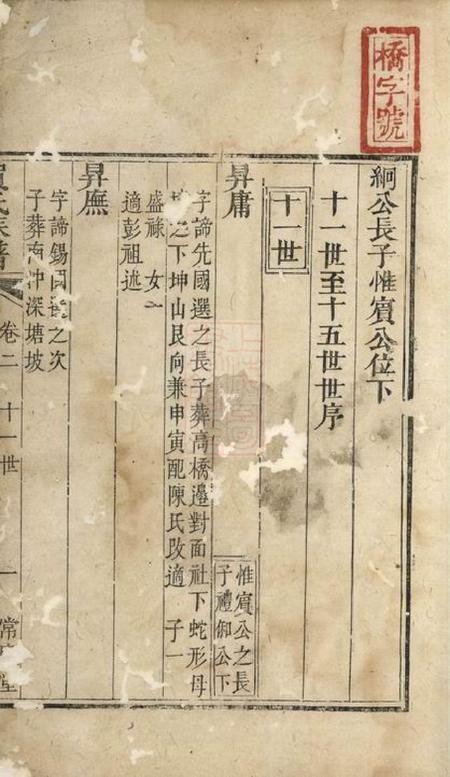 橋字號
絅公長子惟賓公位下
十一世至十五世世序
十一世
昇庸
惟賓公之長
子禮御公下
字諦先國選之長子葬高橋邊對面社下蛇形母
之下坤山艮向兼申寅配陳氏改適 子一
盛祿 女一
適彭祖述
昇廡
字諦錫國之次
子葬南冲深塘坡
氏族譜 卷二 十一世 一 堂